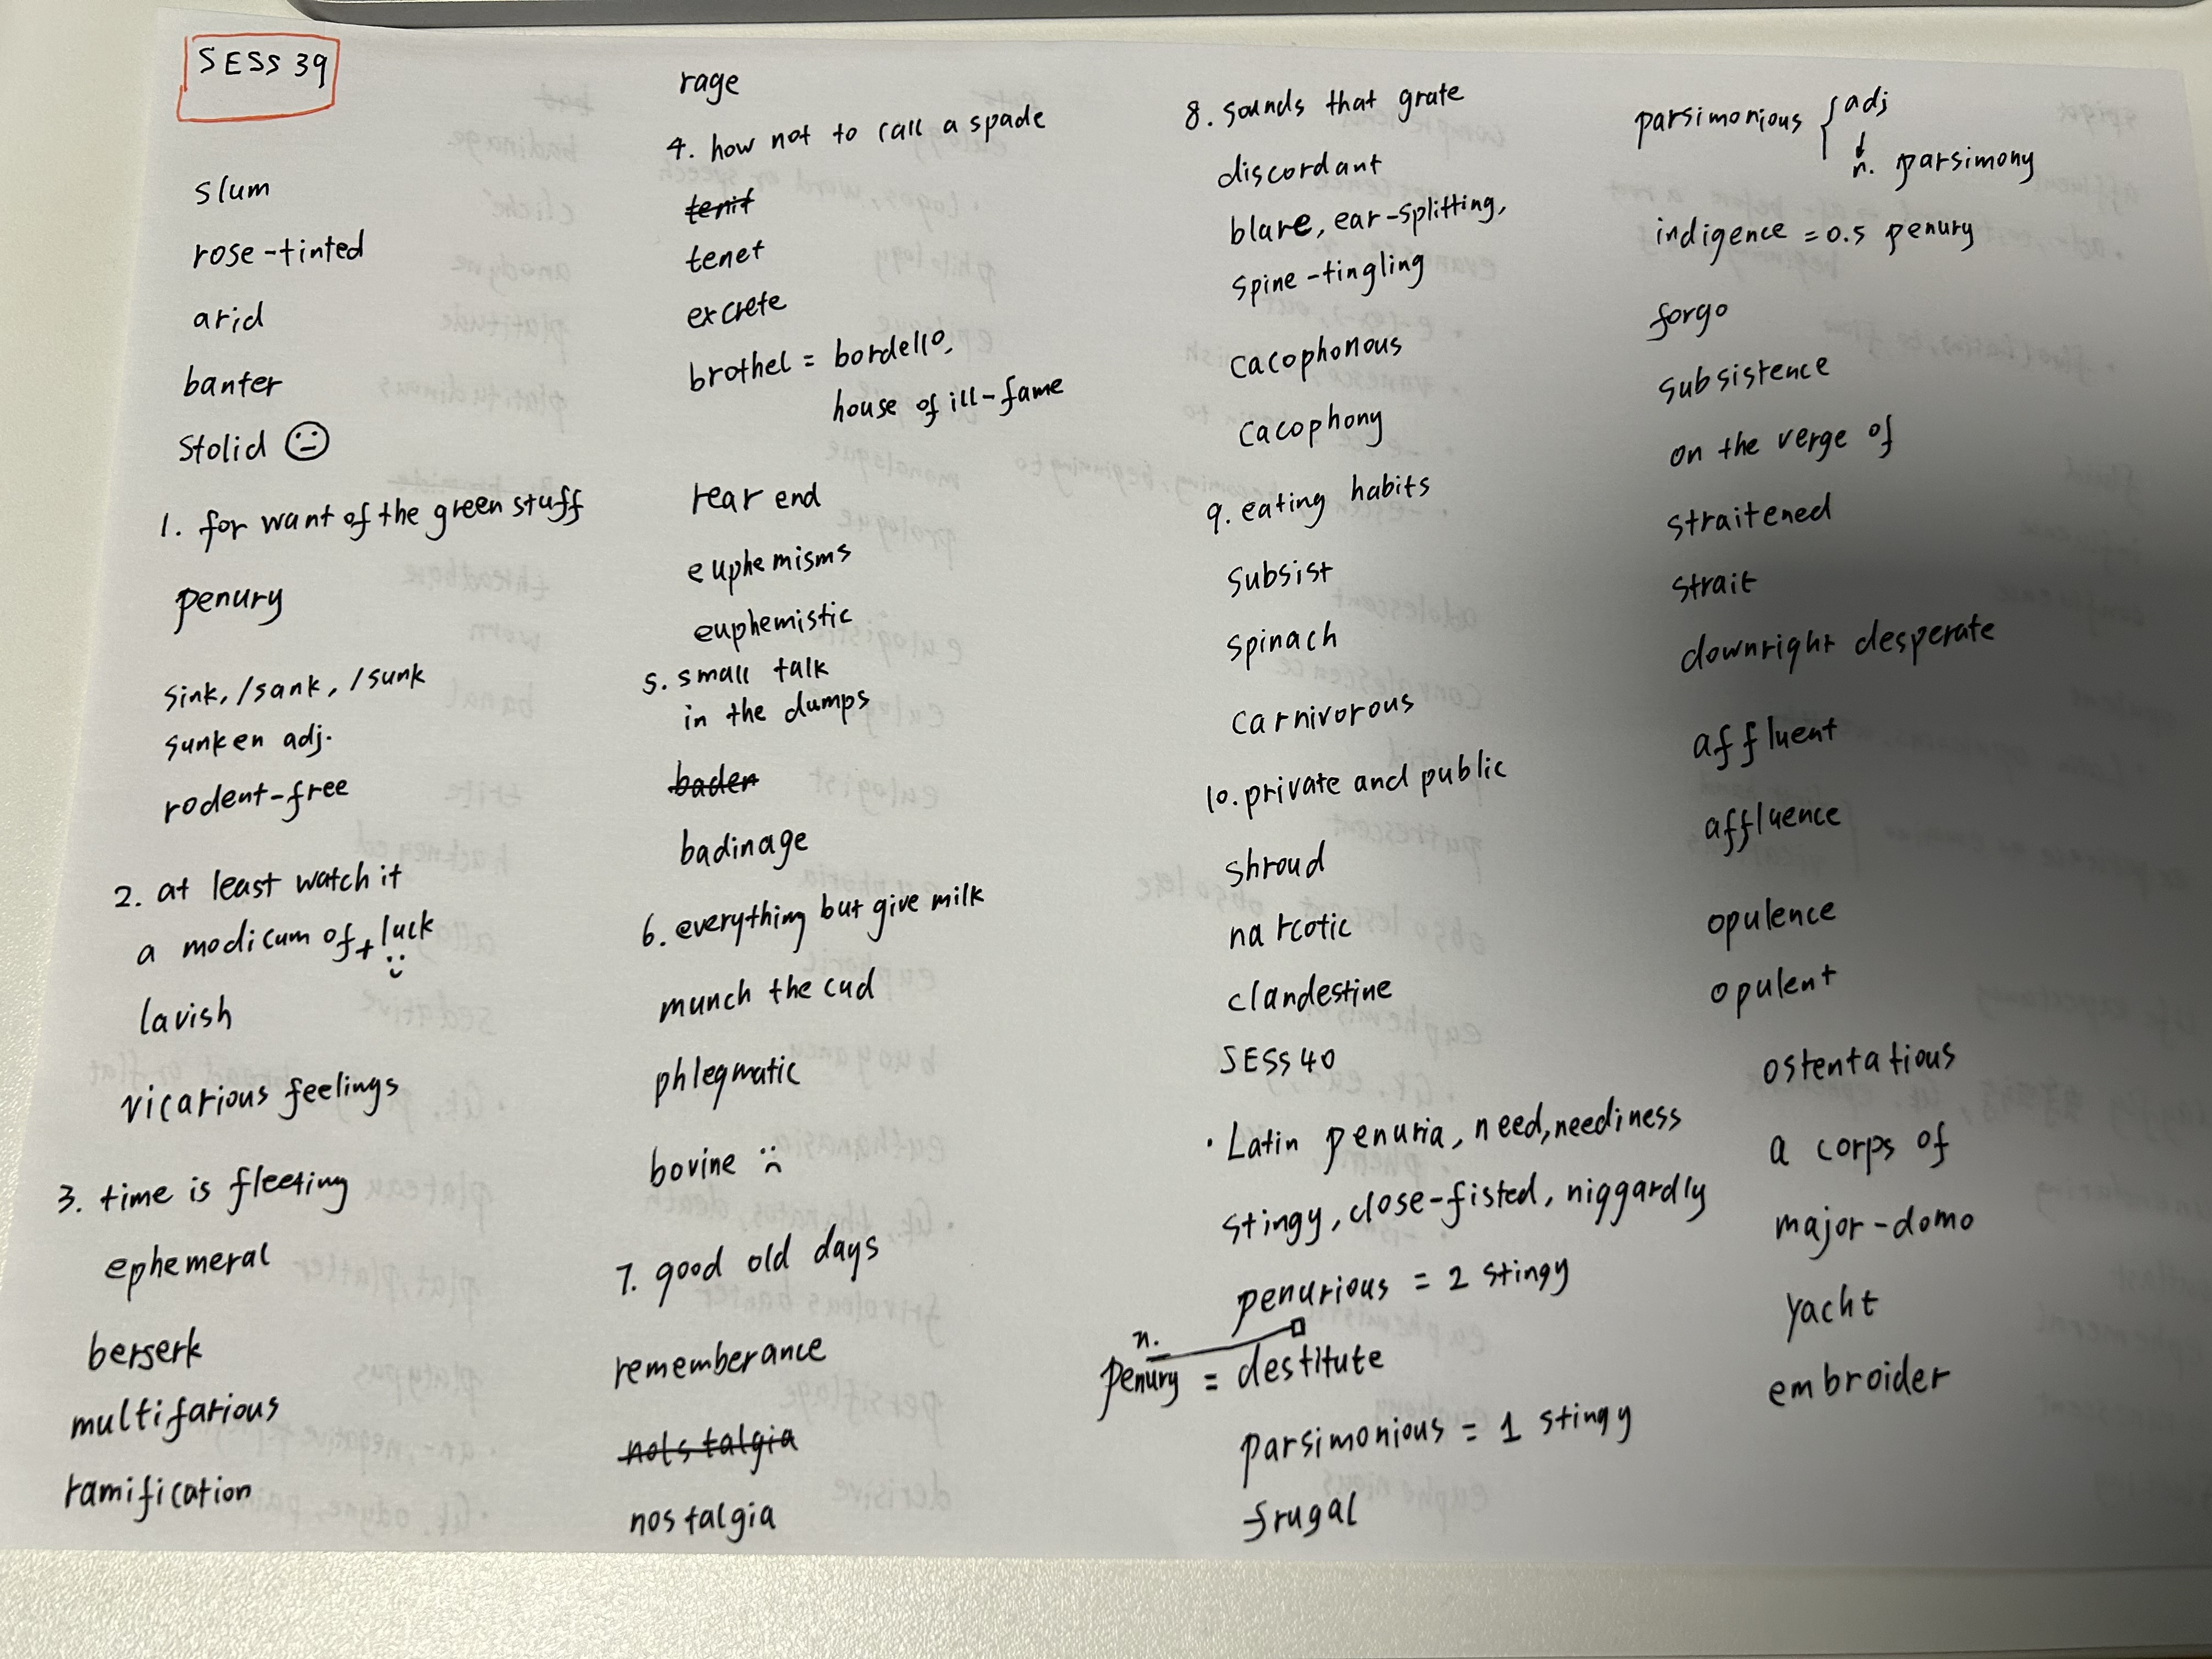 SESS 39
slum
rose-tinted
arid
banter
stolid
1. for want of the green stuff
penury
sink, /sank, /sunk
sunken adj.
rodent-free
2. at least watch it
a modicum of + luck
lavish
vicarious feelings
3. time is fleeting
ephemeral
berserk
multifarious
ramification
rage
4. how not to call a spade
tenit
tenet
excrete
brothel = bordello,
house of ill-fame
rear end
euphemisms
euphemistic
5. small talk
in the dumps
baden
badinage
6. everything but give milk
munch the cud
phlegmatic
bovine
7. good old days
rememberance
nolstalgia
nostalgia
8. sounds that grate
discordant
blare, ear-splitting,
spine-tingling
cacophonous
cacophony
9. eating habits
subsist
spinach
carnivorous
10. private and public
shroud
narcotic
clandestine
SESS 40
· Latin penuria, need, neediness
stingy, close-fisted, niggardly
penurious = 2 stingy
n.
penury = destitute
parsimonious = 1 stingy
frugal
parsimonious { adj
↓
n. parsimony
indigence = 0.5 penury
forgo
subsistence
on the verge of
straitened
strait
downright desperate
affluent
affluence
opulence
opulent
ostentatious
a corps of
major-domo
yacht
embroider